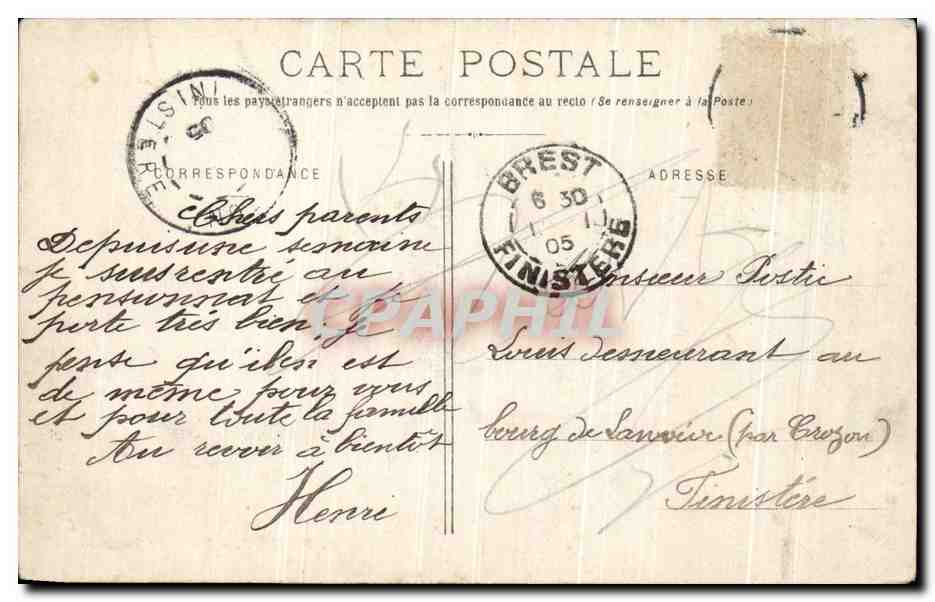 CARTE POSTALE
Tous les pays étrangers n'acceptent pas la correspondance au recto (Se renseigner à la Poste)
CORRESPONDANCE
ADRESSE
FINISTERE
05
BREST
6 30
05
FINISTERE
Chers parents
Depuis une semaine
je suis rentré au
pensionnat et je
porte très bien. Je
pense qu'il en est
de même pour vous
et pour toute la famille
Au revoir à bientôt
Henri
Monsieur
Louis demeurant au
bourg de Lanvéoc (par Crozon)
Finistére
CPAPHIL